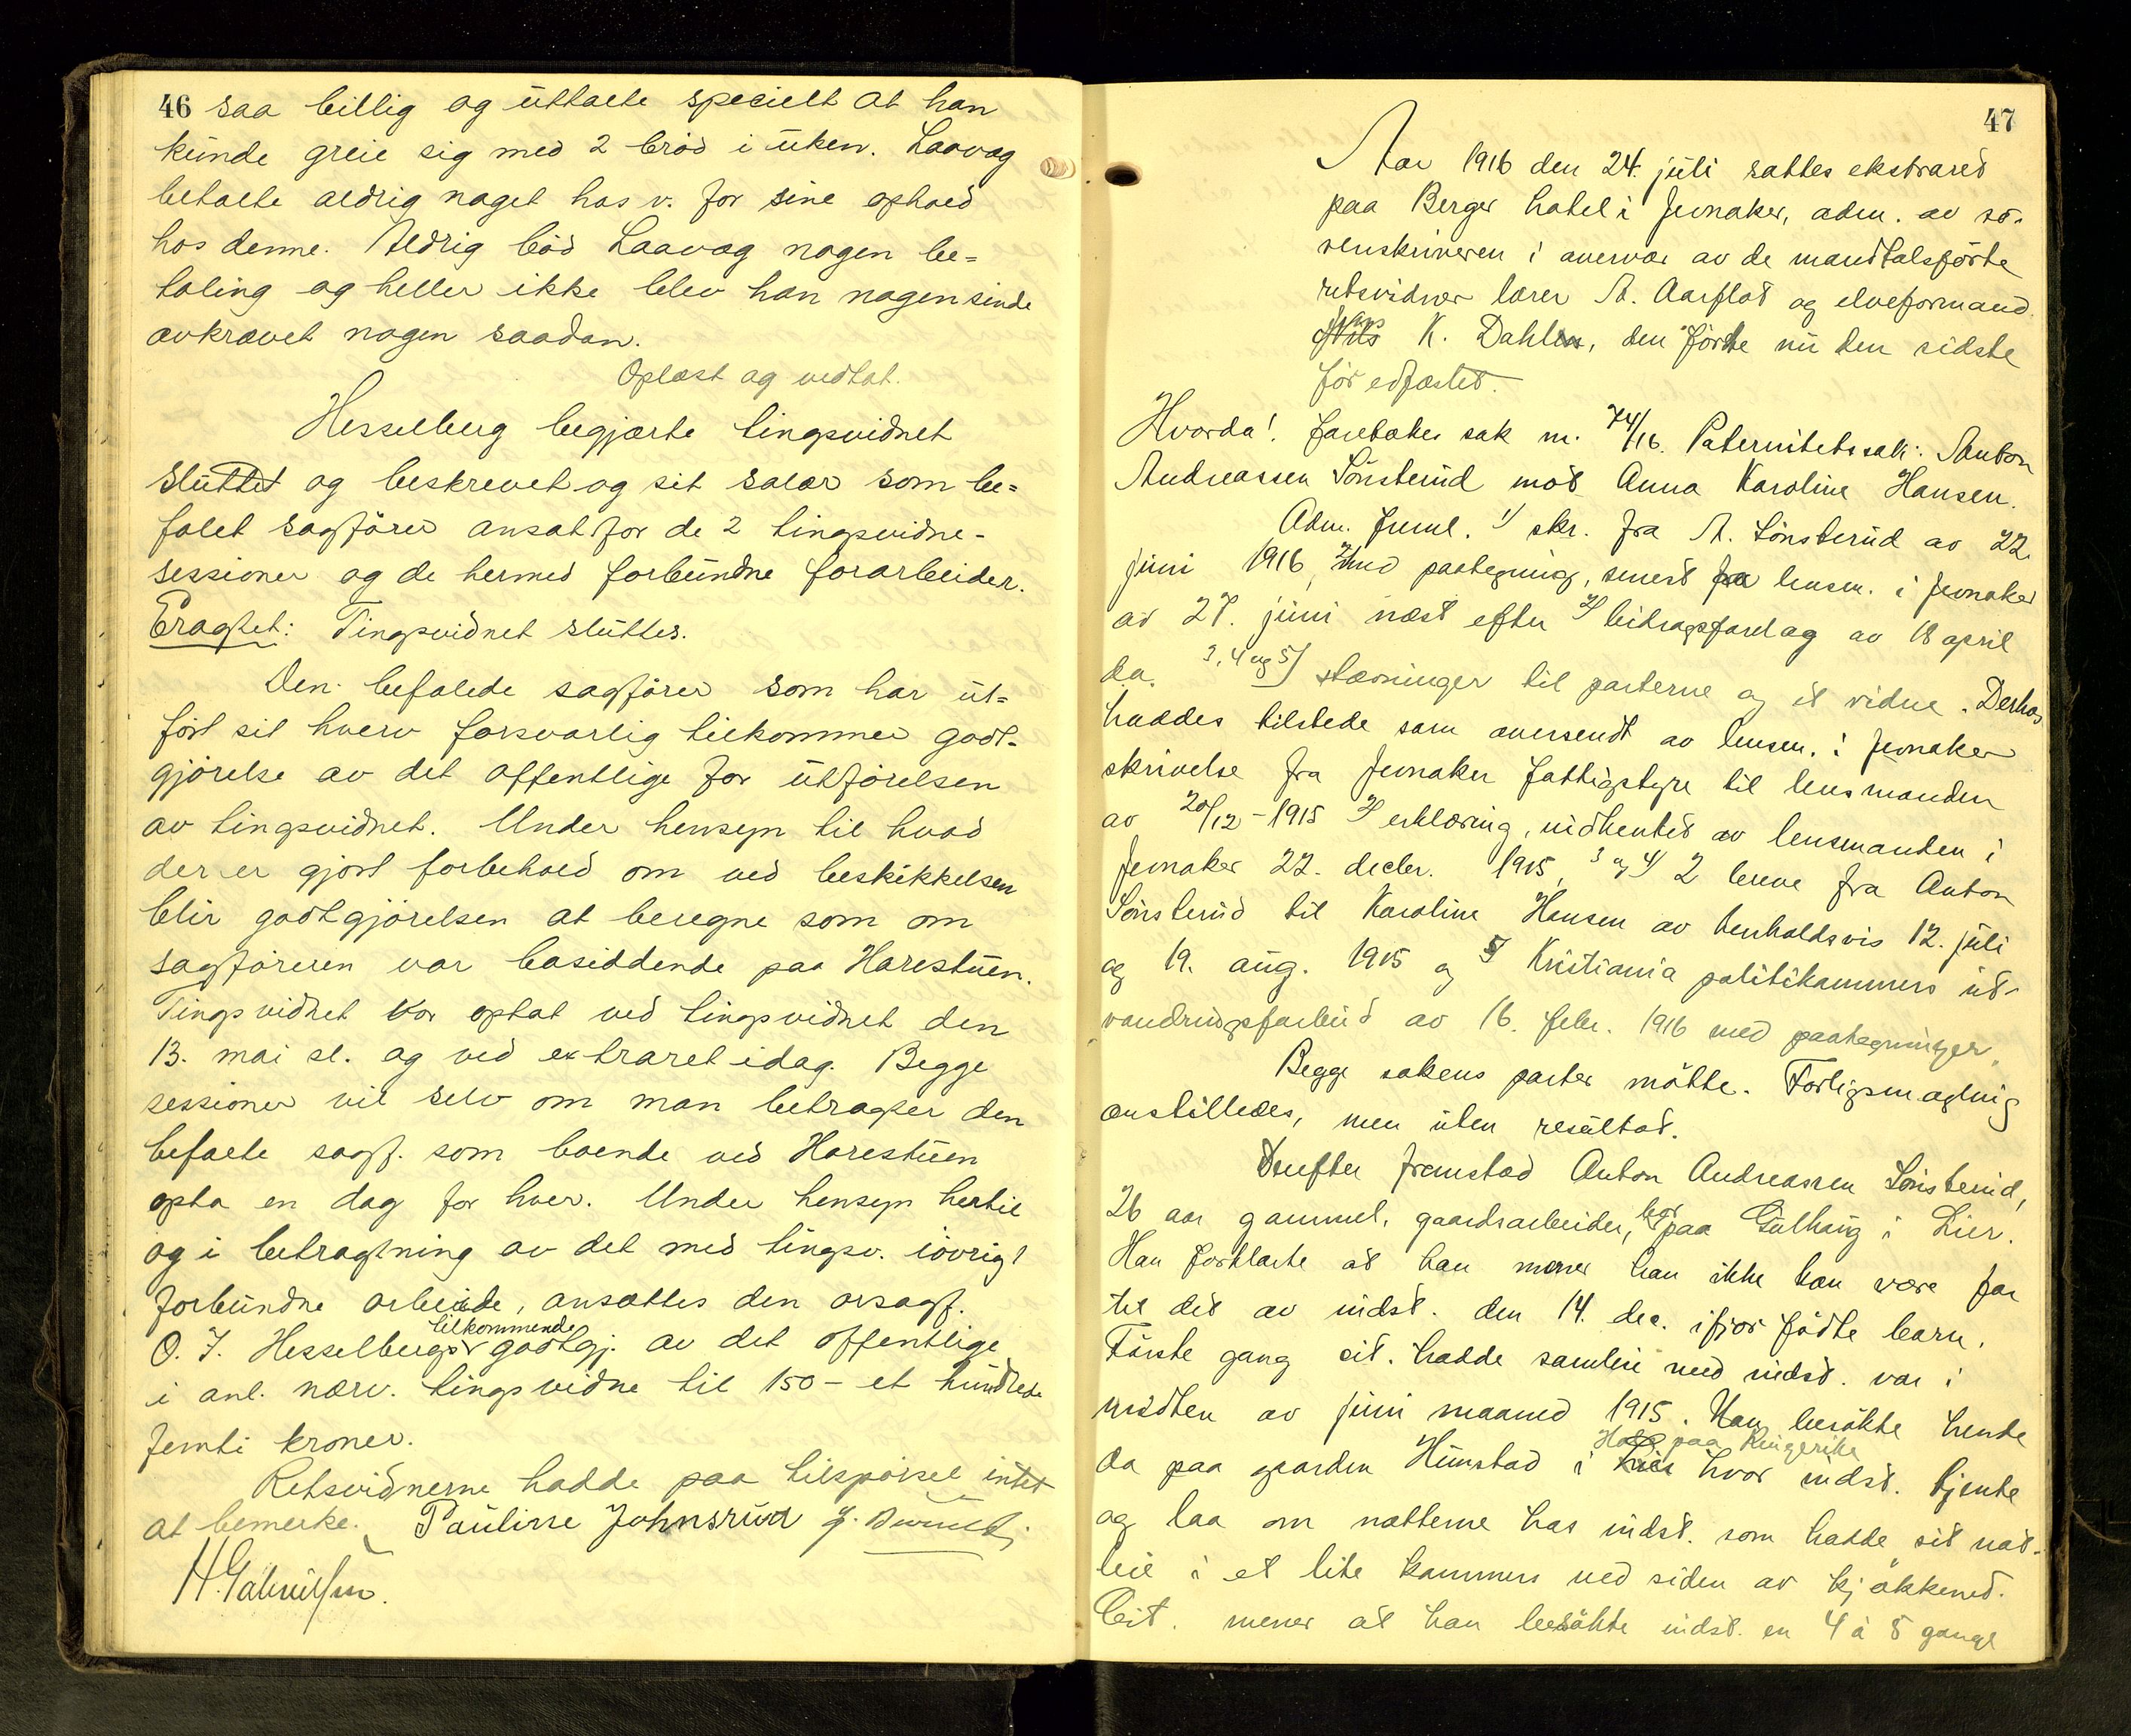 46 saa billig og uttalte specielt at han
kunde greie sig med 2 brød i uken. Laavag
betalte aldrig noget hos v. for sine ophold
hos denne. Aldrig bød Laavag nogen be=
taling og heller ikke blev han nogensinde
avkrævet nogen saadan.
Oplæst og vedtat.
Hesselberg begjærte tingsvidnet
sluttet og beskrevet og sit salær som be=
falet sagfører ansat for de 2 tingsvidne-
sessioner og de hermed forbundne forarbeider.
Eragtet: Tingsvidnet sluttes.
Den befalede sagfører som har ut=
ført sit hverv forsvarlig tilkommer godt-
gjørelse av det offentlige for utførelsen
av tingsvidnet. Under hensyn til hvad
der er gjort forbehold om ved beskikkelsen
blir godtgjørelsen at beregne som om
sagføreren var bosiddende paa Harestuen.
Tingsvidnet var optat ved tingsvidnet den
13. mai sl. og ved extraret idag. Begge
sessioner vil selv om man betragter den
befalte sagf. som boende ved Harestuen
opta en dag for hver. Under hensyn hertil
og i betragtning av det med tingsv. iøvrigt
forbundne arbeide, ansættes den orsagf.
O. J. Hesselberg tilkommende godtgj. av det offentlige
i anl. nærv. tingsvidne til 150 - et hundrede
femti kroner.
Retsvidnerne hadde paa tilspørsel intet
at bemerke. Pauline Johnsrud
H. Gabrielsen.
47
Aar 1916 den 24. juli sattes ekstraret
paa Berger hotel i Jevnaker, adm. av so-
renskriveren i overvær av de mandtalsførte
retsvidner lærer A. Aarflot og elveformand
Hans K. Dahlen, den første nu den sidste
før edfæstet.
Hvorda! Foretokes sak nr. 74/16. Paternitetssak: Anton
Andreassen Sønsterud mot Anna Karoline Hansen.
Adm. freml. 1) skr. fra A. Sønsterud av 22.
juni 1916 med paategning, senest fra lensm. i Jevnaker
av 27. juni næst efter 2) bidragsforelæg av 18 april
d.a. 3, 4 og 5) stævninger til parterne og et vidne. Derhos
haddes tilstede som oversendt av lensm. i Jevnaker
skrivelse fra Jevnaker fattigstyre til lensmanden
av 20/12-1915 2) erklæring, indhentet av lensmanden i
Jevnaker 22. decbr. 1915, 3 og 4) 2 breve fra Anton
Sønsterud til Karoline Hansen av henholdsvis 12. juli
og 19. aug. 1915 og 5) Kristiania politikammers ut-
vandringsforbud av 16. febr. 1916 med paategninger.
Begge sakens parter møtte. Forligsmægling
anstilledes, men uten resultat.
Derefter fremstod Anton Andreassen Sønsterud,
26 aar gammel, gaardsarbeider, bor paa Gulhaug i Lier.
Han forklarte at han mener han ikke kan være far
til det av indst. den 14. dec. ifjor fødte barn.
Første gang cit. hadde samleie med indst. var i
midten av juni maaned 1915. Han besøkte hende
da paa gaarden Hunstad i Hole paa Ringerike hvor indst. tjente
og laa om nætterne hos indst. som hadde sit nat-
leie i et lite kammers ved siden av kjøkkenet.
Cit. mener at han besøkte indst. en 4 à 5 gange